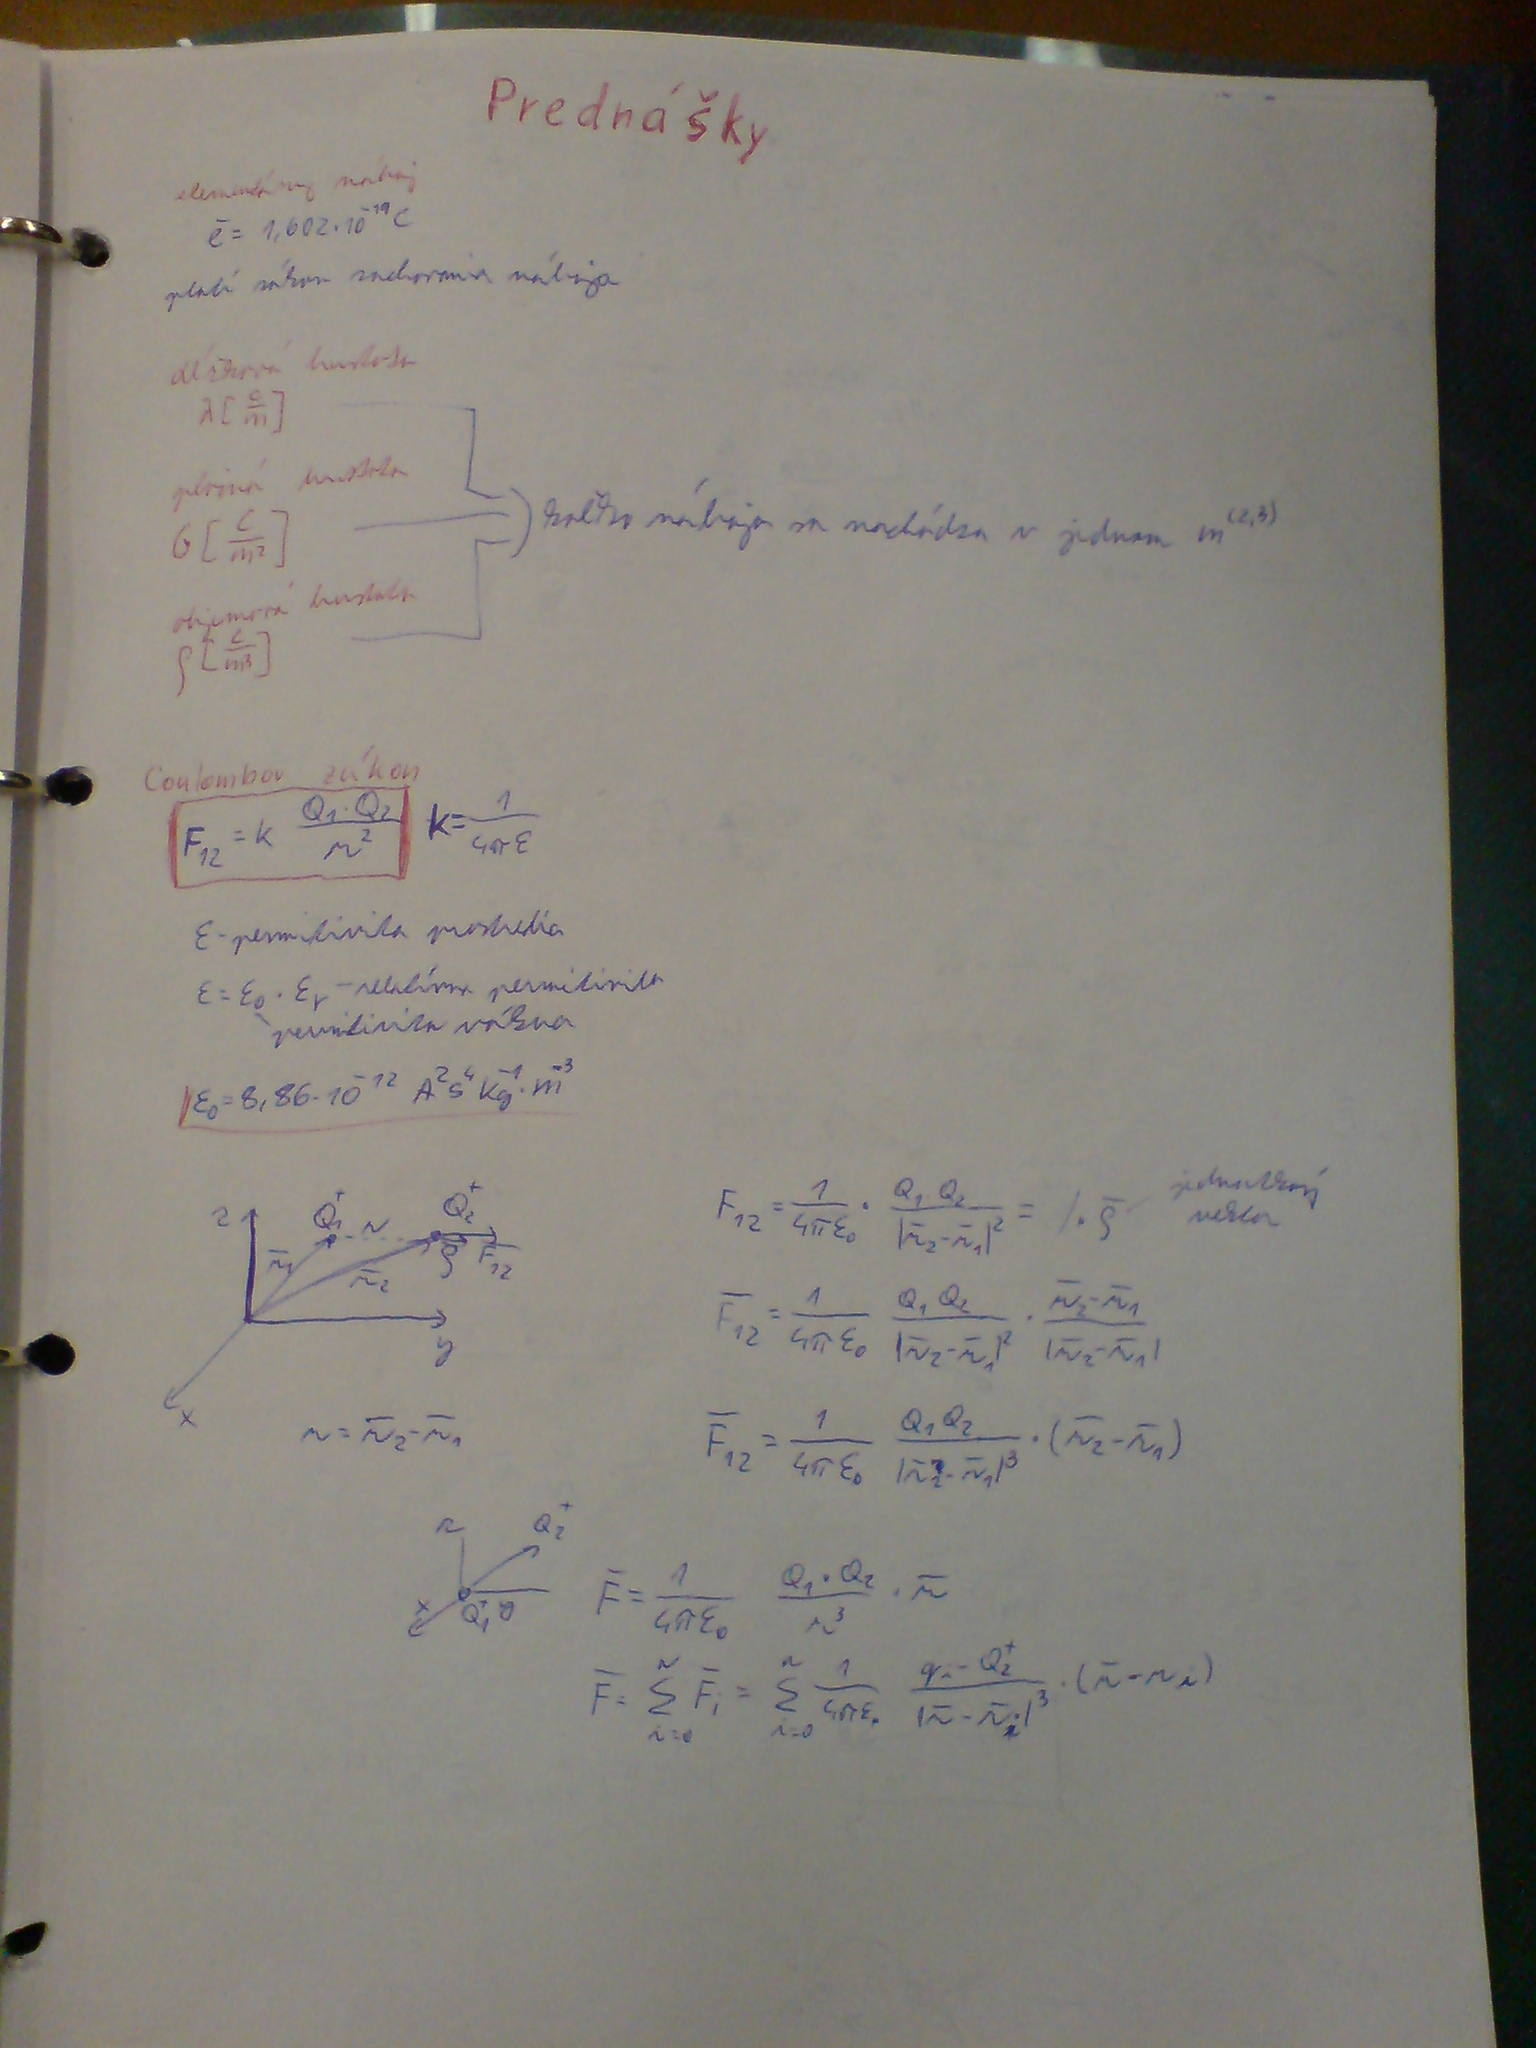 Prednášky
elementárny náboj
ē = 1,602·10⁻¹⁹ C
platí zákon zachovania náboja
dĺžková hustota
λ [C/m]
plošná hustota
σ [C/m²]
koľko náboja sa nachádza v jednom m^(2,3)
objemová hustota
ρ [C/m³]
Coulombov zákon
F₁₂ = k Q₁·Q₂/r² k = 1/4πε
ε - permitivita prostredia
ε = ε₀ · εᵣ - relatívna permitivita
permitivita vákua
ε₀ = 8,86·10⁻¹² A²s⁴kg⁻¹·m⁻³
z Q₁⁺ r Q₂⁺ r̄₁ r̄₂ ρ̄ F̄₁₂ y x
F₁₂ = 1/4πε₀ · Q₁Q₂/|r̄₂-r̄₁|² = /· ρ̄ jednotkový
vektor
F̄₁₂ = 1/4πε₀ Q₁Q₂/|r̄₂-r̄₁|² · r̄₂-r̄₁/|r̄₂-r̄₁|
r = r̄₂-r̄₁
F̄₁₂ = 1/4πε₀ Q₁Q₂/|r̄₂-r̄₁|³ · (r̄₂-r̄₁)
Q₂⁺ x Q₁⁺
F̄ = 1/4πε₀ Q₁·Q₂/r³ · r̄
F̄ = Σ F̄ᵢ = Σ 1/4πε₀ qᵢ-Q₂⁺/|r̄-r̄ᵢ|³ · (r̄-rᵢ)
n n
i=0 i=0